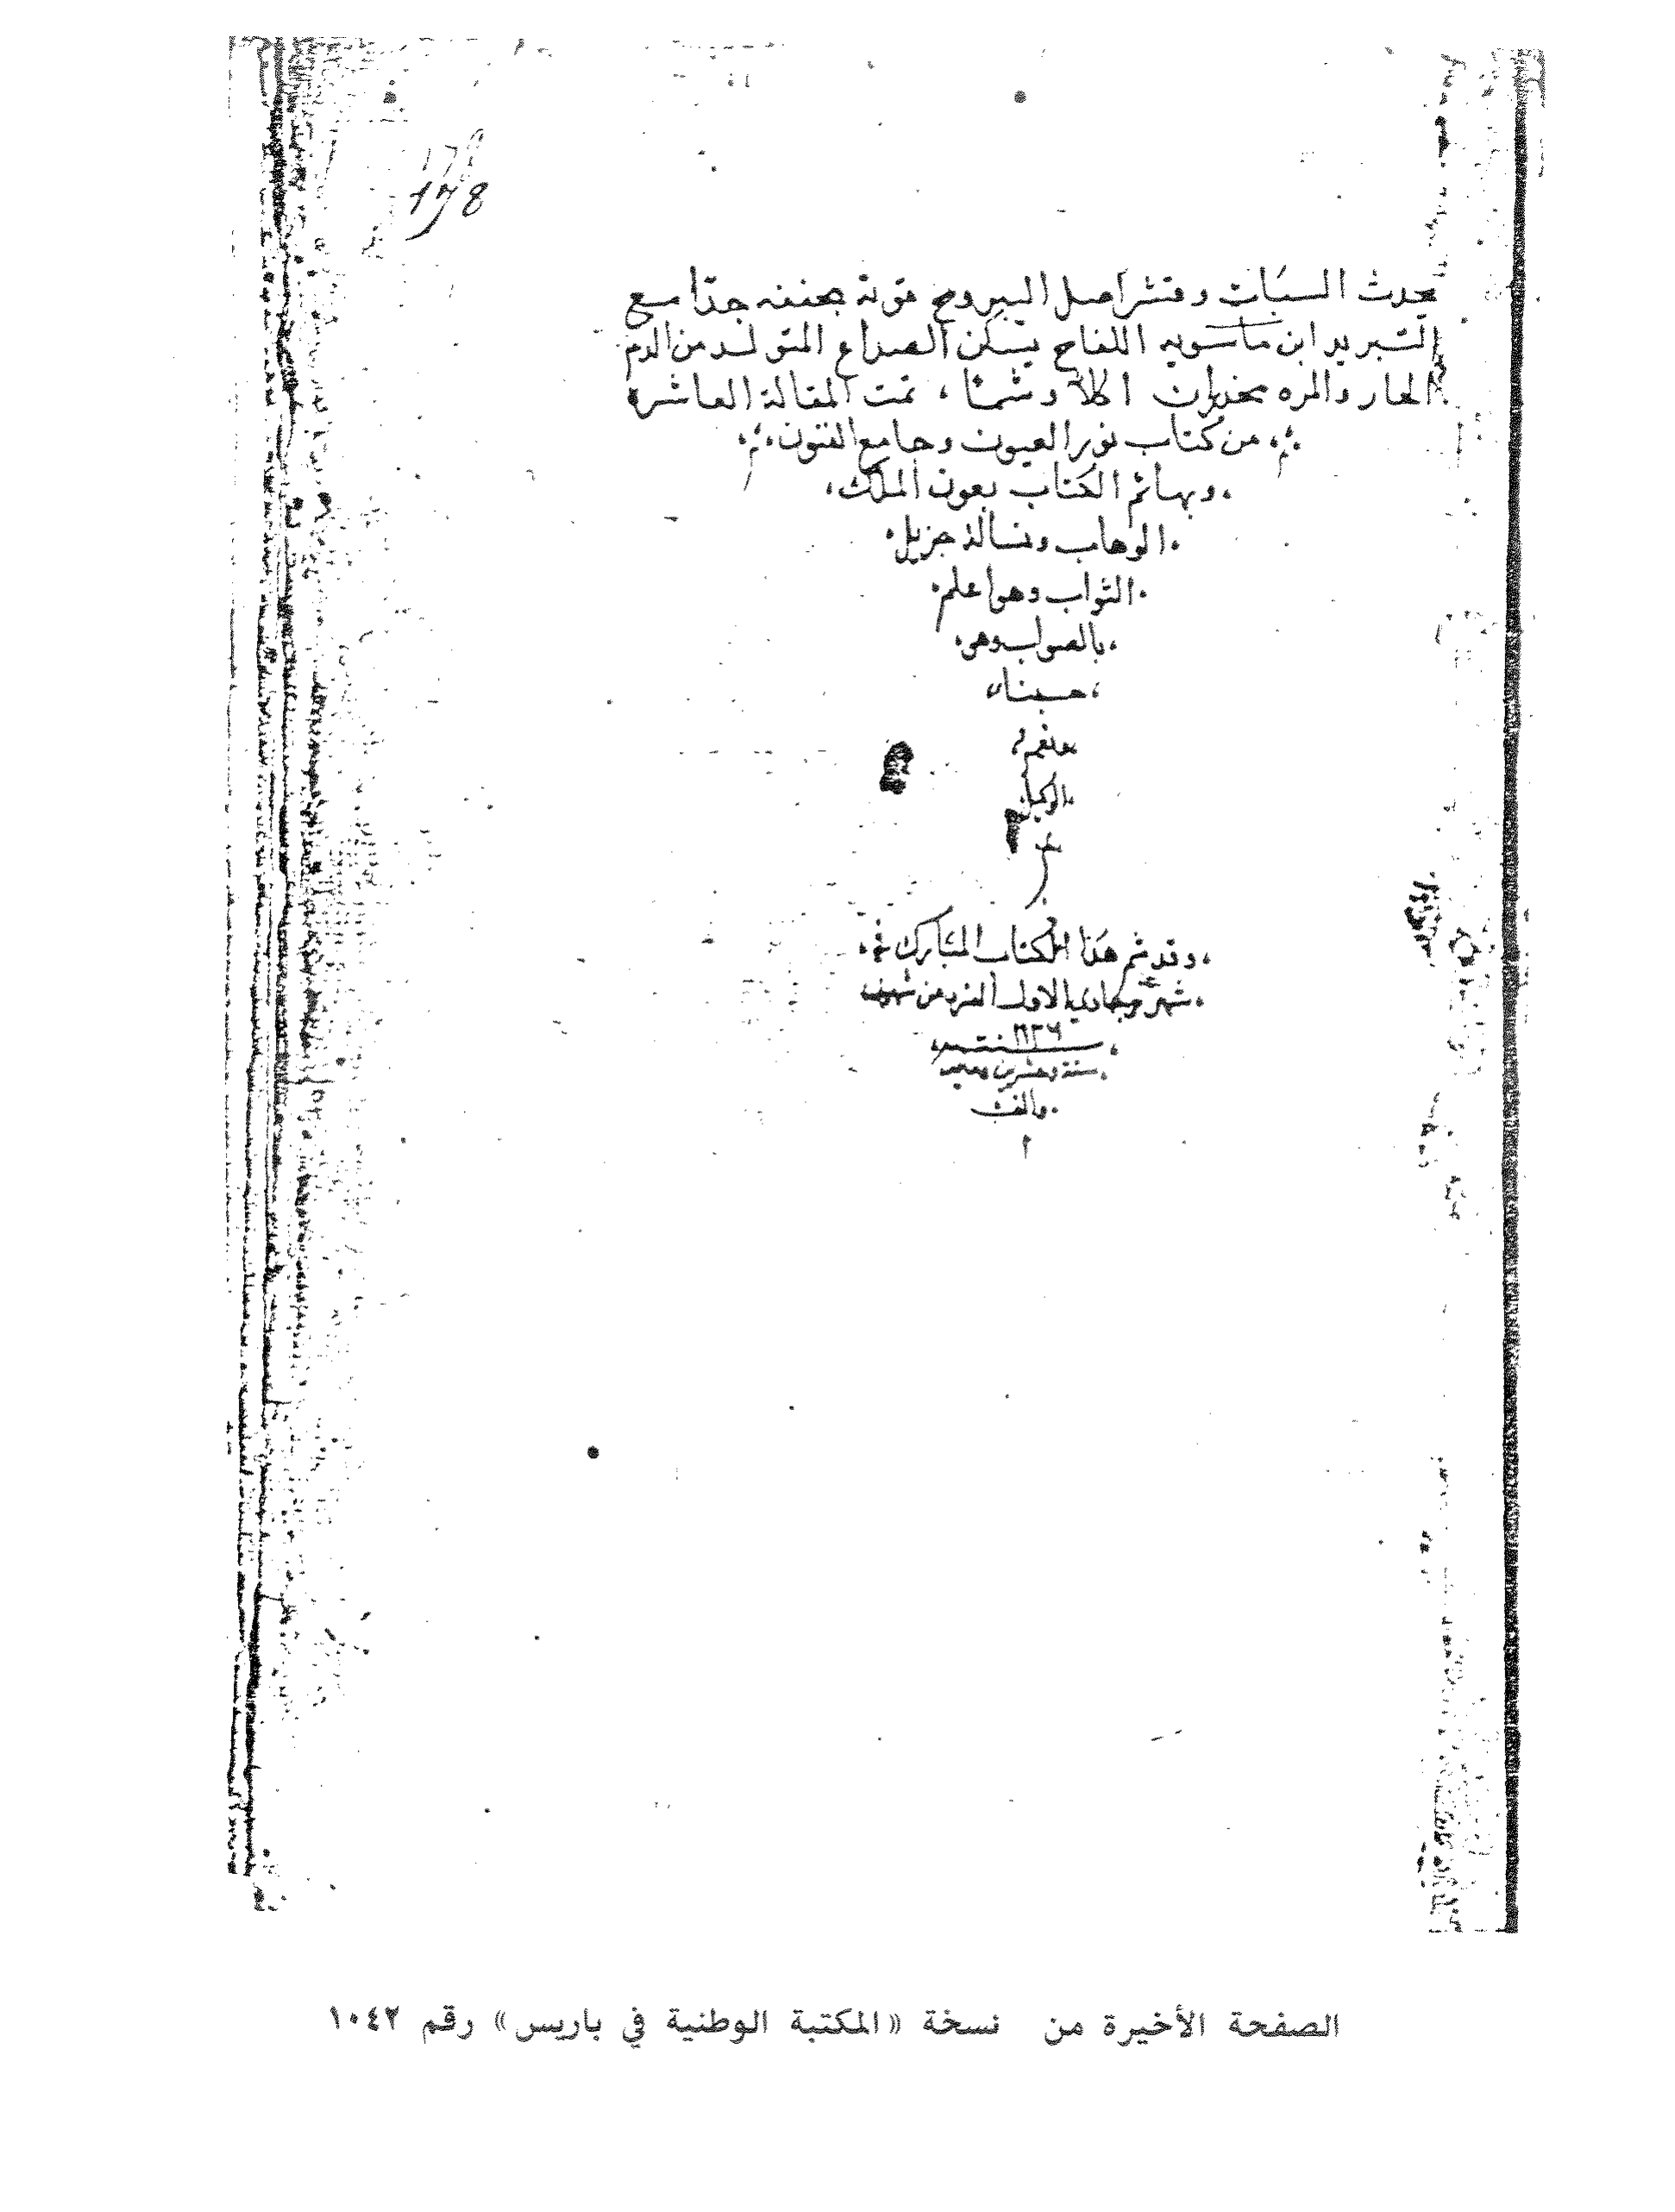 178
178
يحدث السبات وقشر اصل اليبروح قوته مجففه جدا مع
التبريد ابن ماسويه اللفاح يسكن الصداع المتولد من الدم
الحار والمره اكلا وشما ، تمت المقالة العاشره
من كتاب نور العيون وجامع الفنون
وبها تم الكتاب بعون الملك
الوهاب ونساله جزيل
الثواب وهو اعلم
بالصواب وهو
حسبنا
ونعم
الوكيل
وقد تم هذا الكتاب المبارك في
شهر جمادي الاول من شهور
سنة
سنة وعشرين
والف
الصفحة الأخيرة من نسخة «المكتبة الوطنية في باريس» رقم ١٠٤٢